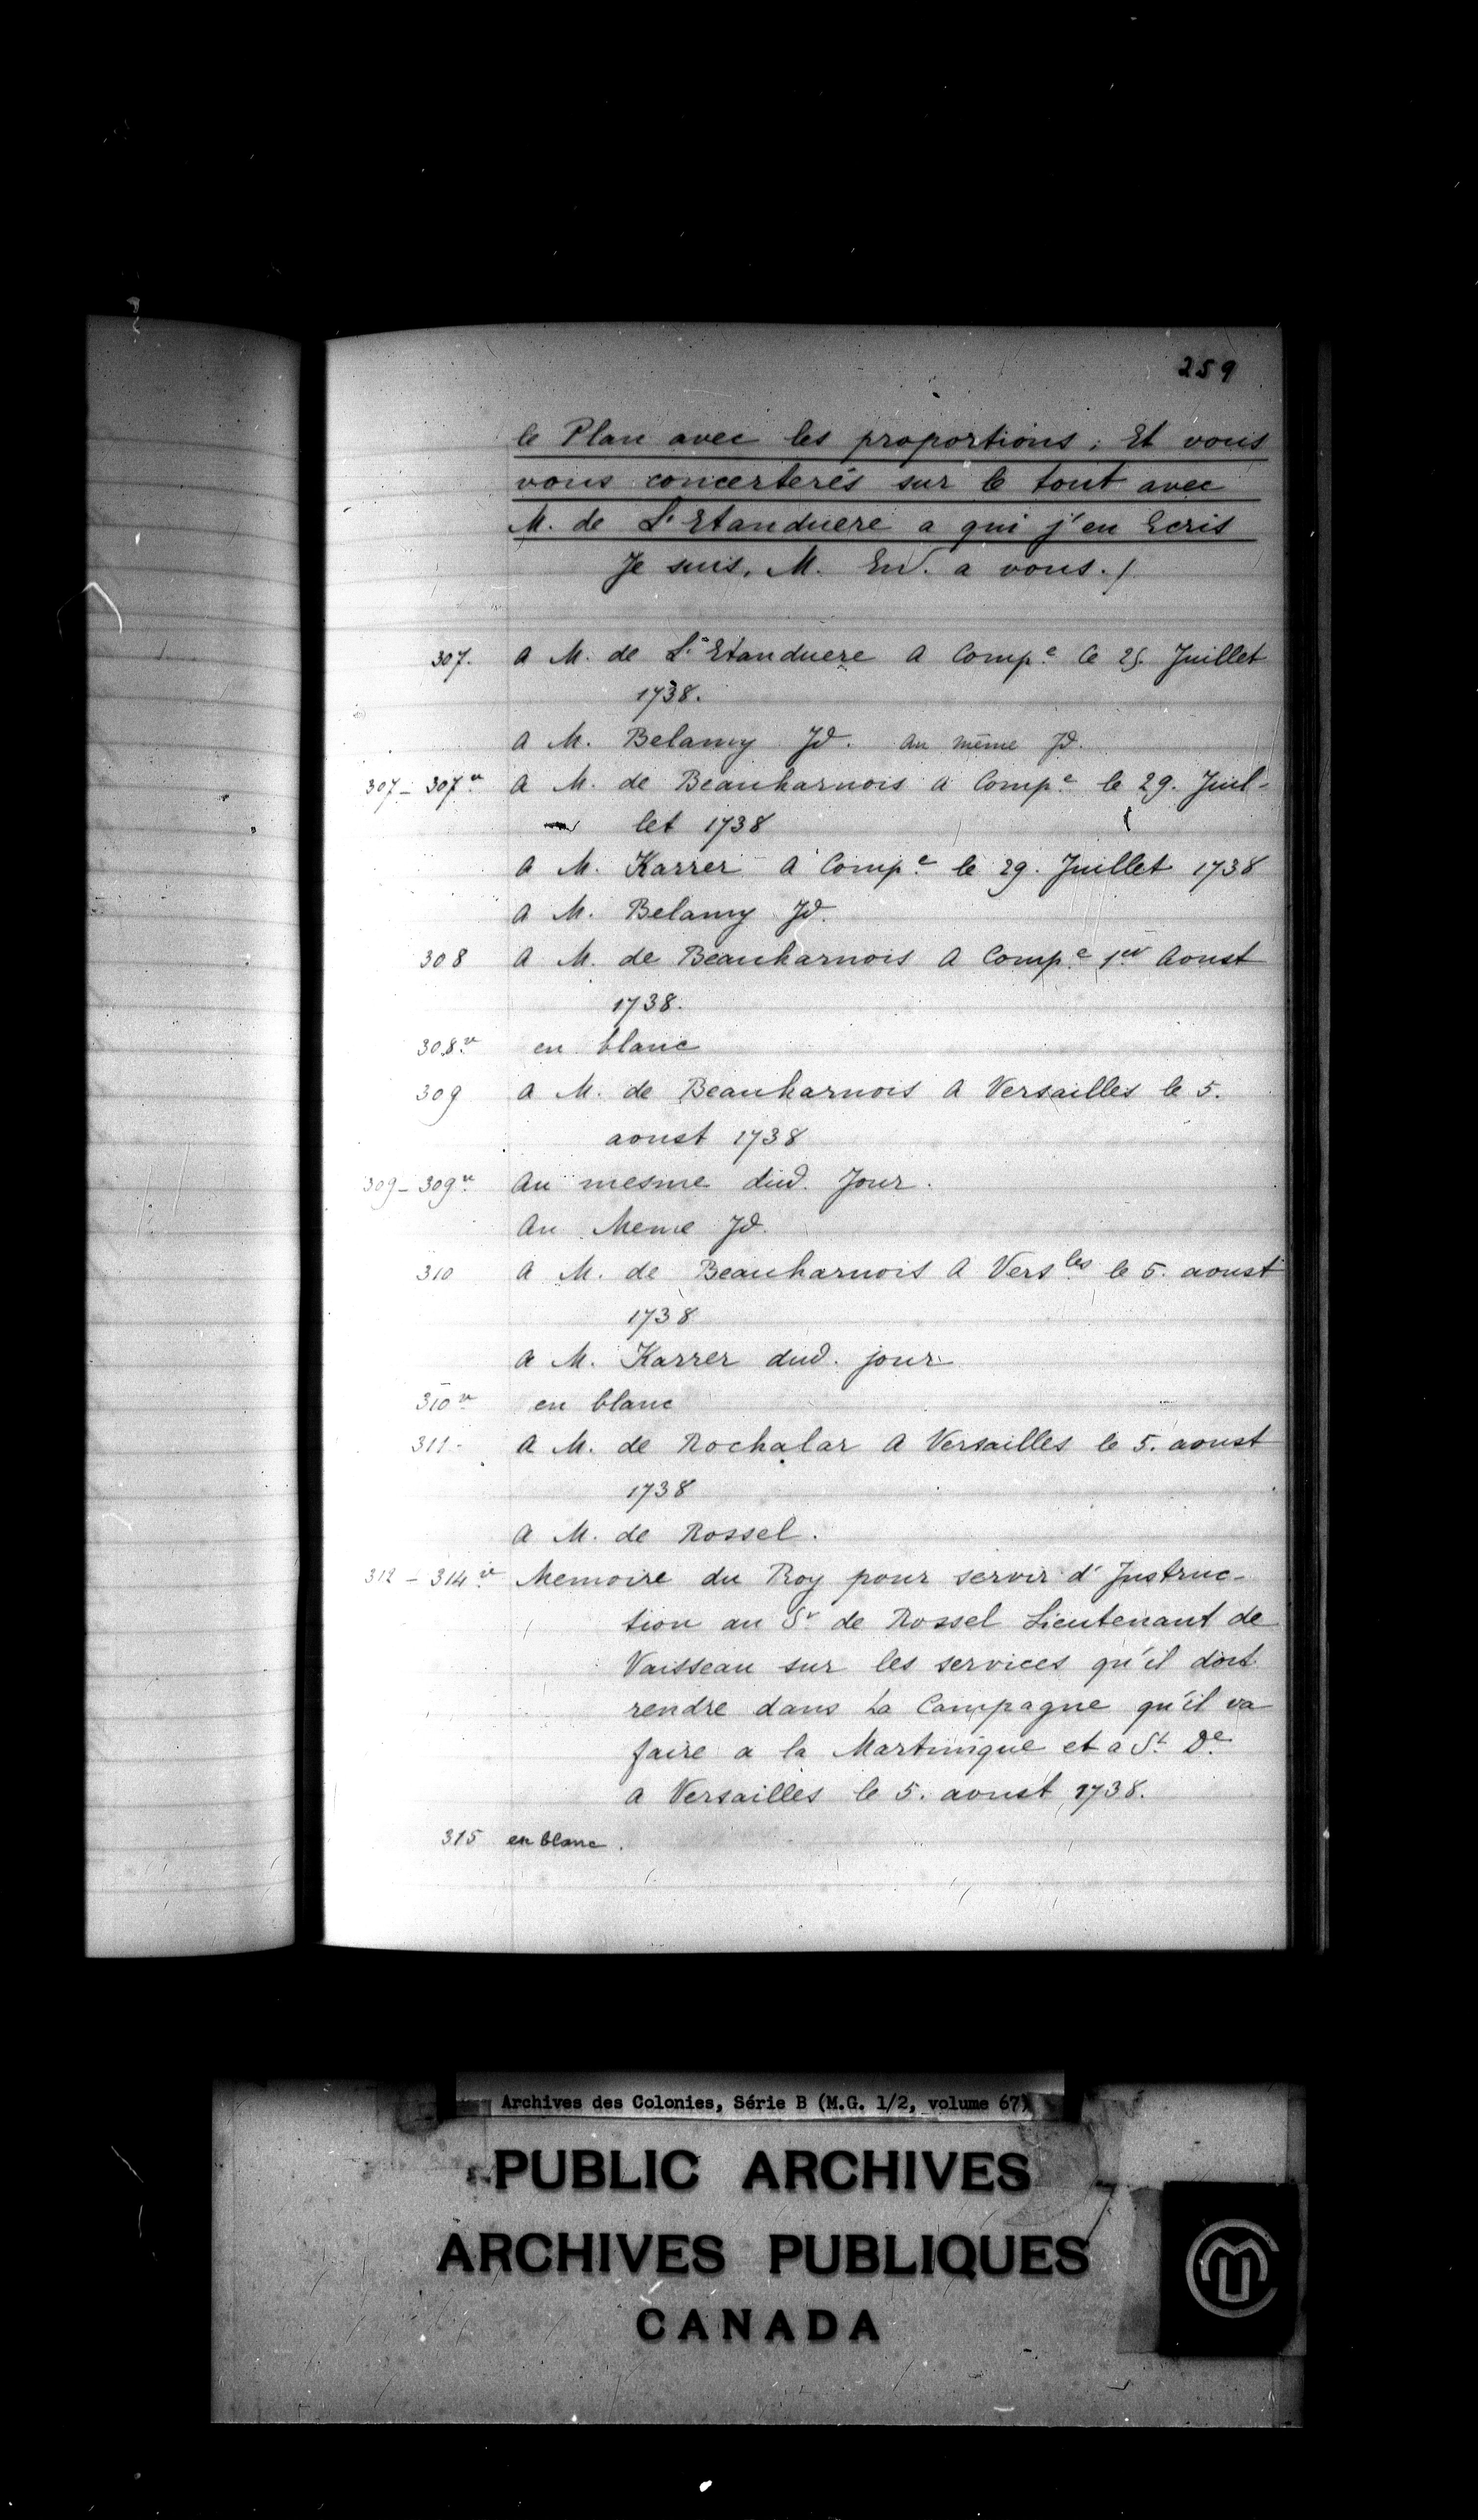 259
le Plan avec les proportions ; Et vous
vous concerterés sur le tout avec
M. de L'Etanduere a qui j'en Ecris
Je suis, M. Ent. a vous ./
307. a M. de L'Etanduere A Comp.e le 25 Juillet
1738.
a M. Belamy Jd. au même Jd.
307 - 307 v. a M. de Beauharnois a Comp.e le 29. Juil-
let 1738
a M. Karrer A Comp.e le 29. Juillet 1738
a M. Belamy Jd.
308 a M. de Beauharnois A Comp.e 1er Aoust
1738.
308 v. en blanc
309 a M. de Beauharnois A Versailles le 5.
aoust 1738
309 - 309 v. Au mesme dud. Jour.
Au Meme Jd.
310 a M. de Beauharnois A Vers.les le 5. aoust
1738
a M. Karrer dud. jour
310 v. en blanc
311 - A M. de Rochalar A Versailles le 5. aoust
1738
a M. de Rossel.
312 - 314 v. Memoire du Roy pour servir d'Instruc-
tion au Sr de Rossel Lieutenant de
Vaisseau sur les services qu'il doit
rendre dans La Campagne qu'il va
faire a la Martinique et a St De
a Versailles le 5. aoust 1738.
315 en blanc.
Archives des Colonies, Série B (M.G. 1/2, volume 67)
PUBLIC ARCHIVES
ARCHIVES PUBLIQUES
CANADA